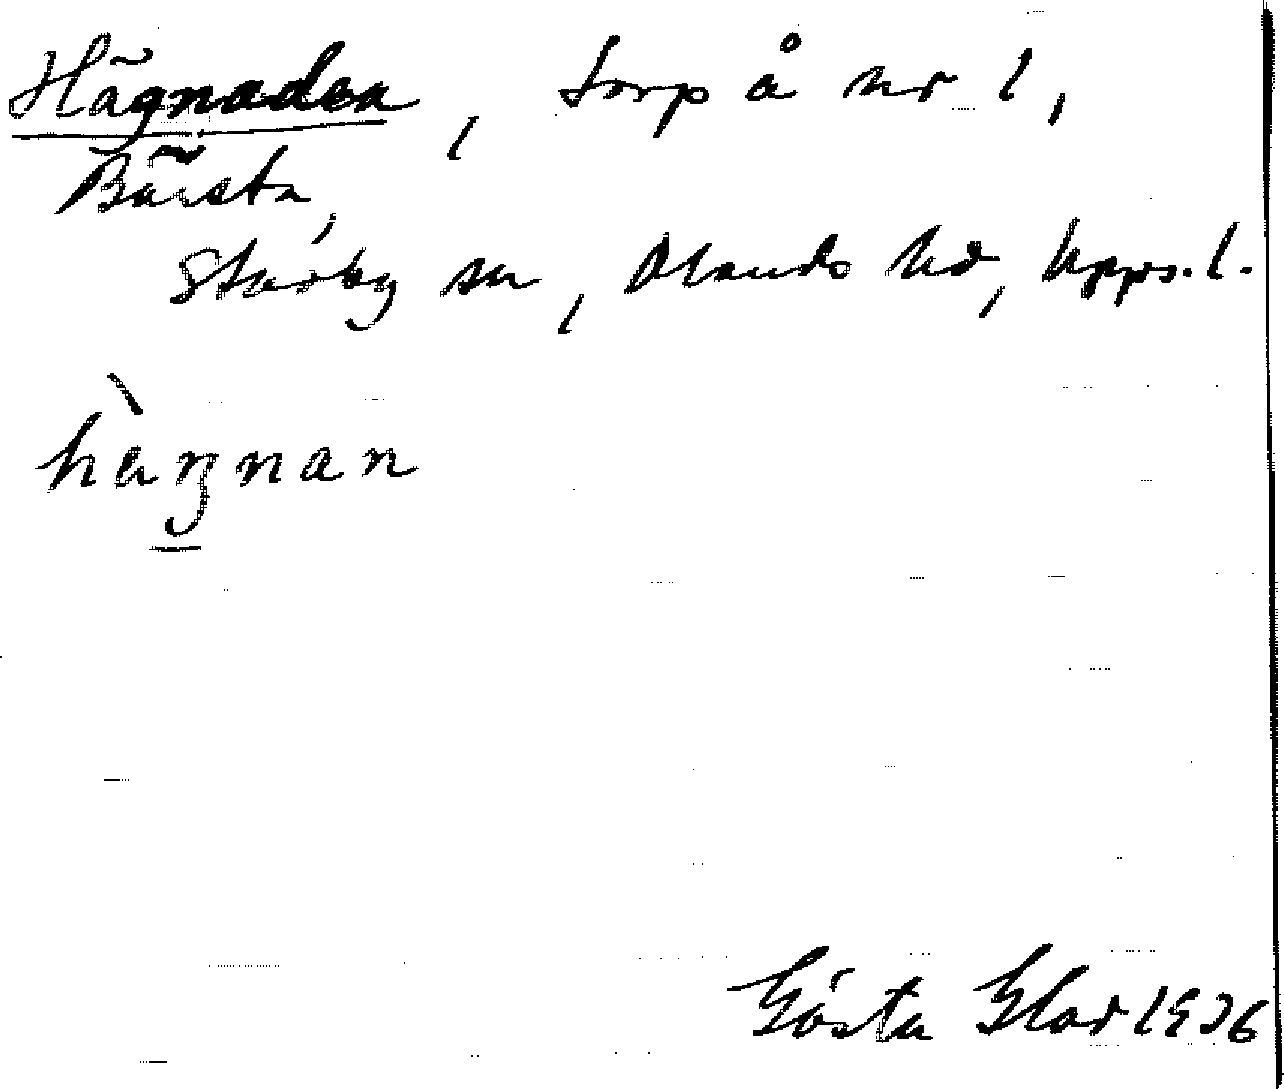 Hägnaden, torp å nr 1,
Bärsta,
Stavby sn, Olands hd, Upps. l.
hàŋnan
Gösta Glad 1936